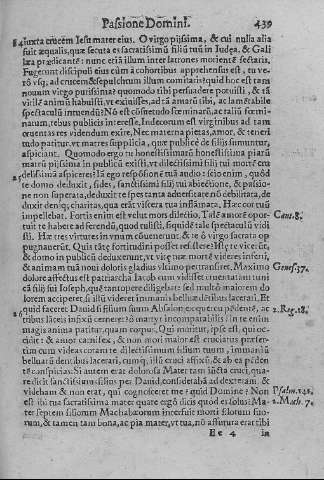 Passione Domini. 439
24 iuxta crucem Iesu mater eius. O virgo pijssima, & cui nulla alia
fuit æqualis, quæ secuta es sacratissimũ filiũ tuũ in Iudęa, & Gali
læa prædicante: nunc etiã illum inter latrones morientẽ sectaris.
Fugerunt discipuli eius cùm à cohortibus apprehensus est, tu ve-
rò vsq; ad crucem & sepulchrum illum comitaris: quid hoc est tam
nouum virgo purissima? quomodo tibi persuadere potuisti, & tã
vilẽ animũ habuisti, vt exiuisses, ad tã amarũ tibi, ac lamẽtabile
spectaculũ intuendũ? Nõ est cõsuetudo fœminarũ, ac taliũ fœmi-
natum, rebus publicis interesse, Iudæorum est virginibus ad tam
cruentas res videndum exire. Nec materna pietas, amor, & teneri
tudo patitur, vt matres supplicia, quæ publicè de filijs sumuntur,
aspiciant. Quomodo ergo tu honestissimarũ honestissima piarũ
matrũ pijssima in publicũ existi, vt dilectissimi filij tui mortẽ cru
25 delissimã aspiceres? Iã ego respõsionẽ tuã audio: scio enim, quòd
te domo deduxit, fides, sanctissimi filij tui abiectione, & passio-
ne non superata, deduxit te spes tanta aduersitate nõ debilitata, de
duxit deniq; charitas, qua erãt viscera tua inflãmata. Hæc cor tuũ
impellebat. Fortis enim est velut mors dilectio, Talẽ amorẽ opor Cant. 8.
tuit te habere ad ferendũ, quod tulisti, siquidẽ tale spectaculũ vidi
sti. Hæ tres virtutes in vnum cõuenerunt, & te ô virgo sacrata op-
pugnauerũt. Quis tãtę fortitudini posset resistere? Istę te vicerũt,
& domo in publicũ deduxerunt, vt vitę tuæ mortẽ videres inferri,
& animam tuã noui doloris gladius vltimo pertransiret. Maximo Genes. 37.
dolore affectus est patriarcha Iacob cum vidisset cruentatam tuni
cã filij sui Ioseph, quẽ tantopere diligebat: sed multò maiorem do
lorem acciperet, si illũ videret immanis belluæ dẽtibus lacerari. Et
26 quid faceret Dauid si filium suum Absalon, ex quercu pẽdentẽ, ac 2. Reg. 18.
tribus lãceis infixũ cerneret? ô martyr incomparabilis! In te enim
magis anima patitur, quam corpus. Qui moritur, ipse est, qui oc-
cidit: & amor caruifex, & non mori maior est cruciatus præser-
tim cum videas coram te dilectissimum filium tuum, immaniũ
belluarũ dentibus lacerari, cumq; illũ cruci affixũ, & ab ea pẽden
tẽ conspicias. Si autem erat dolorosa Mater tam iuxta cruci, qua-
re dicit sanctissimus filius per Dauid, considerabã ad dexteram, &
videbam & non erat, qui cognosceret me? quid Domine? Non Psalm. 141.
est ibi tua sacratissima mater quare ergò dicis quòd es solus? Ma- 2. Mach. 7.
ter septem filiorum Machabæorum interfuit morti filorum suo-
rum, & tamen tam bona, ac pia mater, vt tua, nõ assutura erat tibi
Ee 4 in